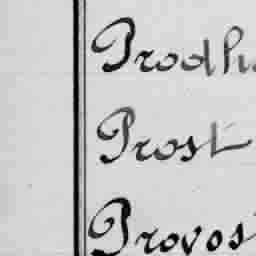 Prodh
Prost
Provost